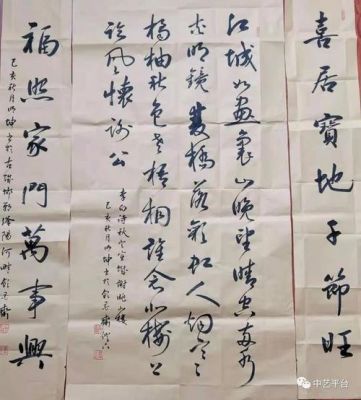 喜居寶地子節旺
江城如畫裏山晚望晴空兩水
夾明鏡雙橋落彩虹人烟寒
橘柚秋色老梧桐誰念北樓上
臨風懷謝公
李白诗秋登宣城謝朓北樓
己亥秋月明坤書於
福照家門萬事興
己亥秋月明坤書於古
中艺平台